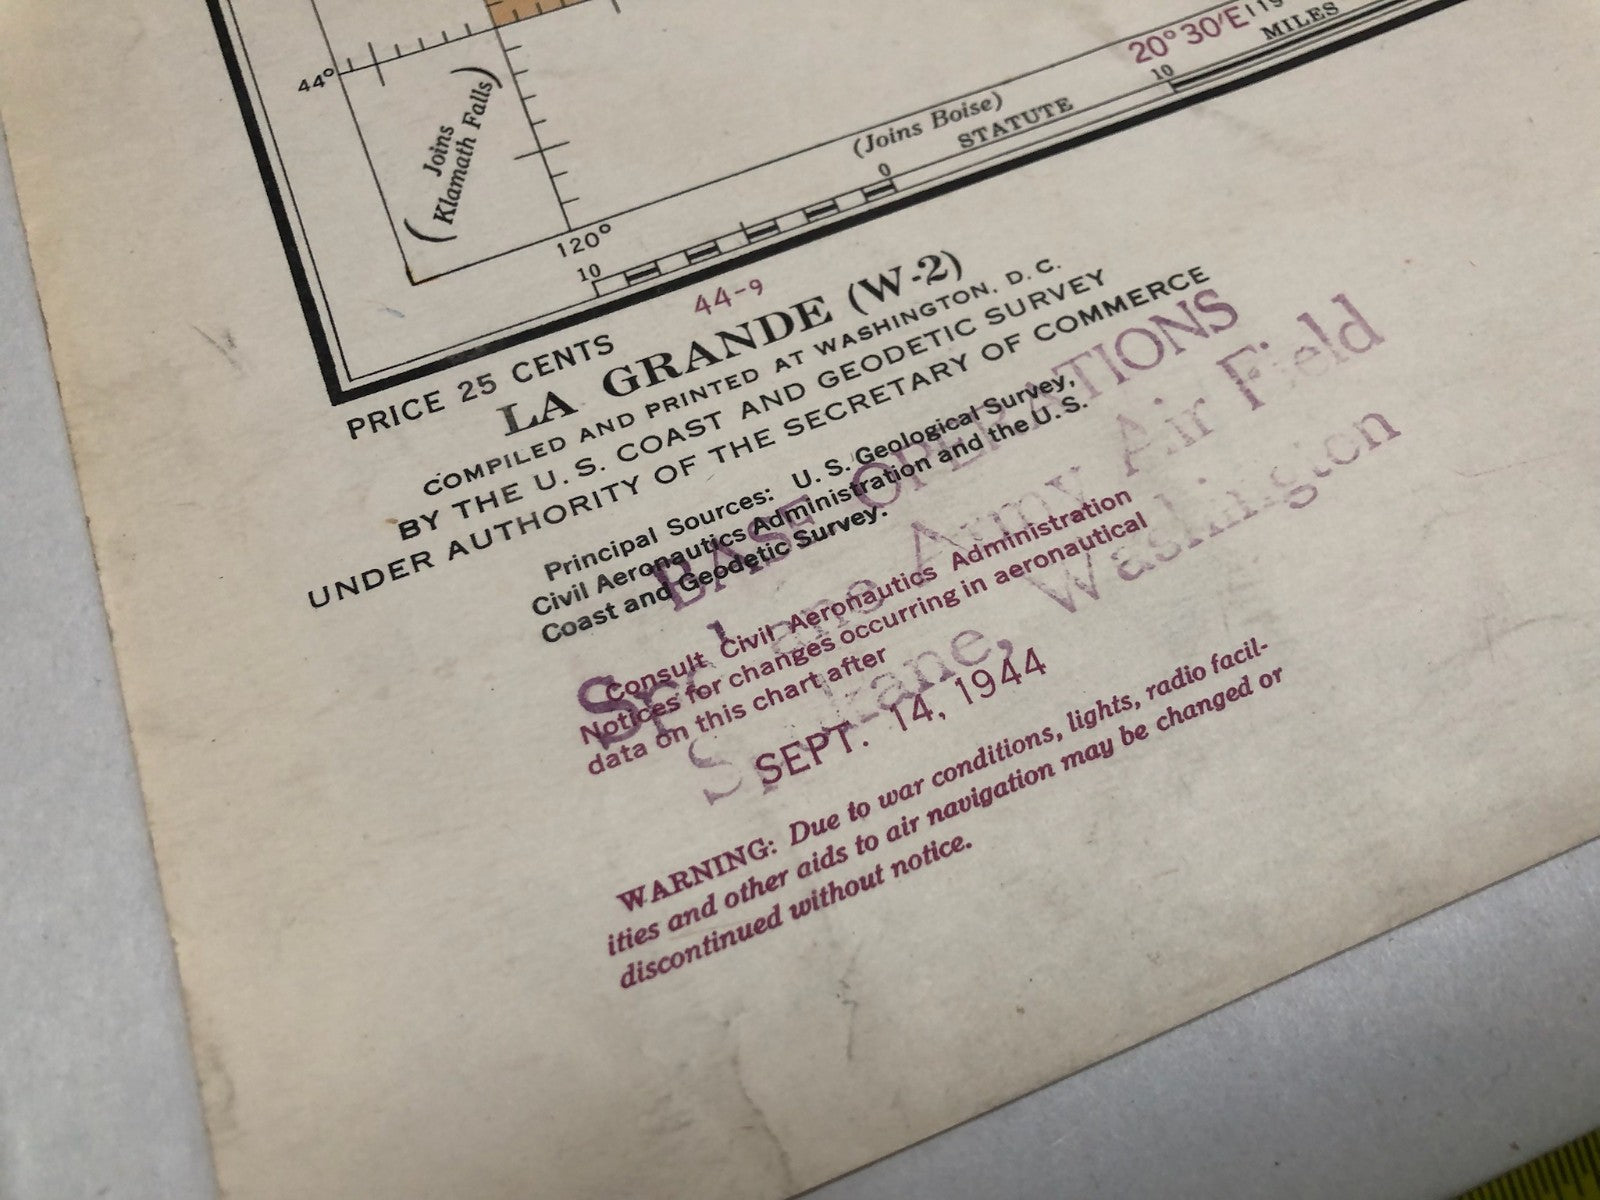 44°
(Joins
Klamath Falls)
120°
(Joins Boise)
20°30'E
10
0
10
STATUTE
MILES
44-9
PRICE 25 CENTS
LA GRANDE (W-2)
COMPILED AND PRINTED AT WASHINGTON, D. C.
BY THE U. S. COAST AND GEODETIC SURVEY
UNDER AUTHORITY OF THE SECRETARY OF COMMERCE
Principal Sources: U. S. Geological Survey,
Civil Aeronautics Administration and the U. S.
Coast and Geodetic Survey.
BASE OPERATIONS
Spokane Army Air Field
Spokane, Washington
Consult Civil Aeronautics Administration
Notices for changes occurring in aeronautical
data on this chart after
SEPT. 14, 1944
WARNING: Due to war conditions, lights, radio facil-
ities and other aids to air navigation may be changed or
discontinued without notice.